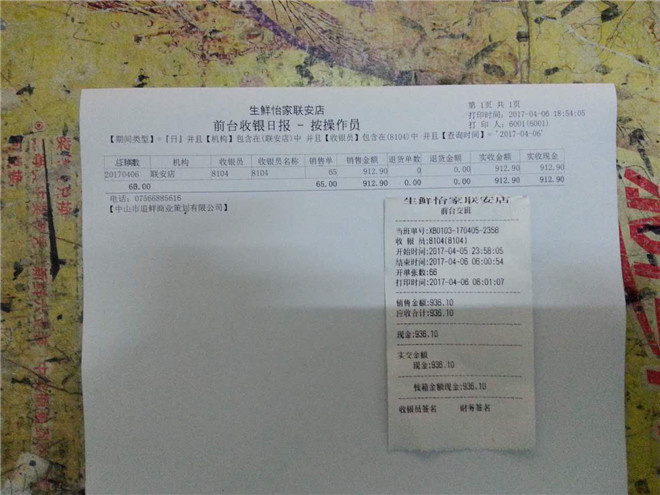 生鲜怡家联安店
前台收银日报 - 按操作员
第 1页 共 1页
打印时间:2017-04-06 18:54:05
打 印 人: 6001(6001)
【期间类型】=『日』并且【机构】包含在(联安店)中 并且【收银员】包含在(8104)中 并且【查询时间】='2017-04-06'
机构 收银员 收银员名称 销售单 销售金额 退货单数 退货金额 实收金额 实收现金
20170406 联安店 8104 8104 65 912.90 0 0.00 912.90 912.90
65.00 912.90 0.00 0.00 912.90 912.90
电话: 07566885616
【中山市溢鲜商业策划有限公司】
生鲜怡家联安店
前台交班
当班单号:XB0103-170405-2358
收 银 员:8104(8104)
开始时间:2017-04-05 23:58:05
结束时间:2017-04-06 06:00:54
开单张数:66
打印时间:2017-04-06 06:01:07
销售金额:936.10
应收合计:936.10
现金:936.10
实交金额
现金:936.10
钱箱金额现金:936.10
收银员签名 财务签名